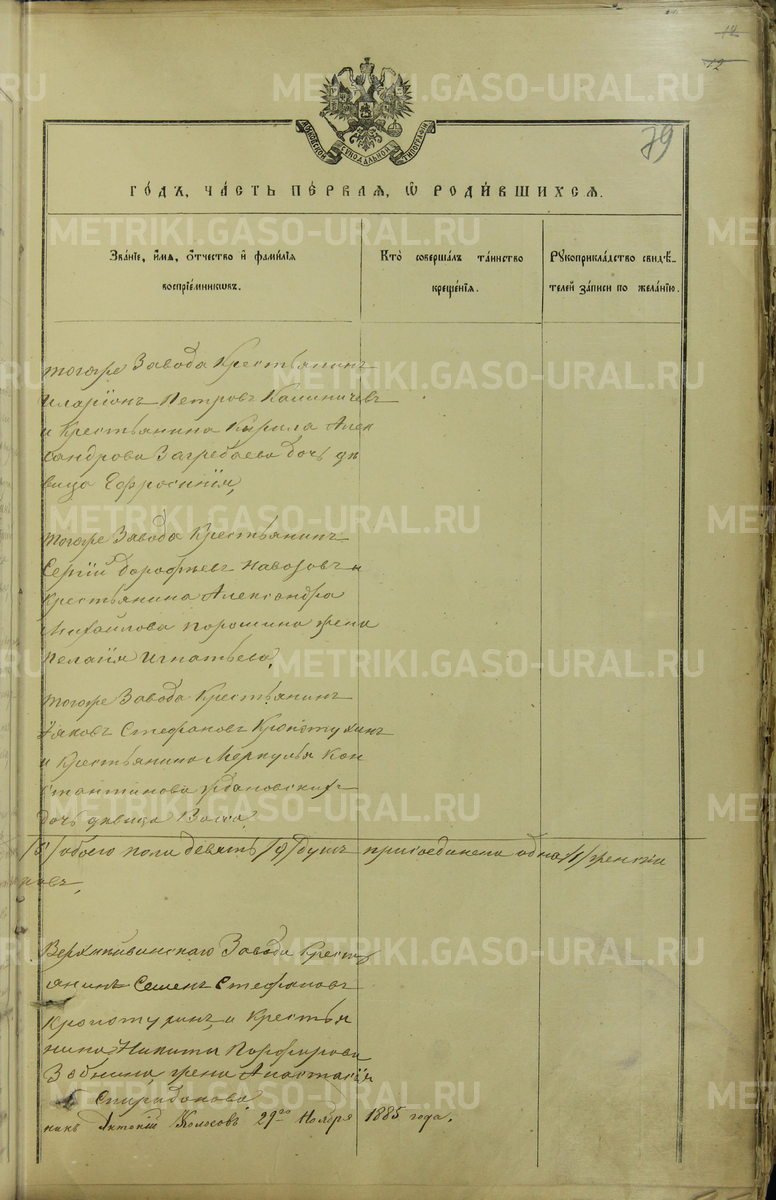 12
12
79
МОСКОВСКОЙ СѴНОДАЛЬНОЙ ТИПОГРАФІИ
ГО́ДЪ, ЧА́СТЬ ПЕ́РВАЯ, Ѡ҆ РОДИ́ВШИХСЯ.
Зва́ніе, и҆́мя, ѻ҆́тчество и҆ фами́лія
воспріе́мникѡвъ.
Кто̀ соверша́лъ та́инство
креще́нія.
Рꙋкоприкла́дство свидѣ́-
телей за́писи по жела́нію.
тогоже Завода Крестьянинъ
Иларіонъ Петровъ Калиничевъ
и Крестьянина Кирила Алек
сандрова Загребаева дочь дѣ
вица Ефросинія,
тогоже Завода Крестьянинъ
Сергій Дорофѣевъ Навозовъ и
Крестьянина Александра
Михайлова Порошина жена
Пелагія Игнатьева,
тогоже Завода Крестьянинъ
Яковъ Стефановъ Кропотухинъ
и Крестьянина Меркулья Кон
стантинова
дочь дѣвица Васса
обоего пола девять /9/ душъ присоединена одна /1/ женска
Верхнейвинскаго Завода Крест
янинъ Семенъ Стефановъ
Кропотухинъ, и Крестья
нина Никиты Порфирова
Зобнина, жена Анастасія
Спиридонова
никъ Антоній Колосовъ 29го Ноября 1885 года.
METRIKI.GASO-URAL.RU